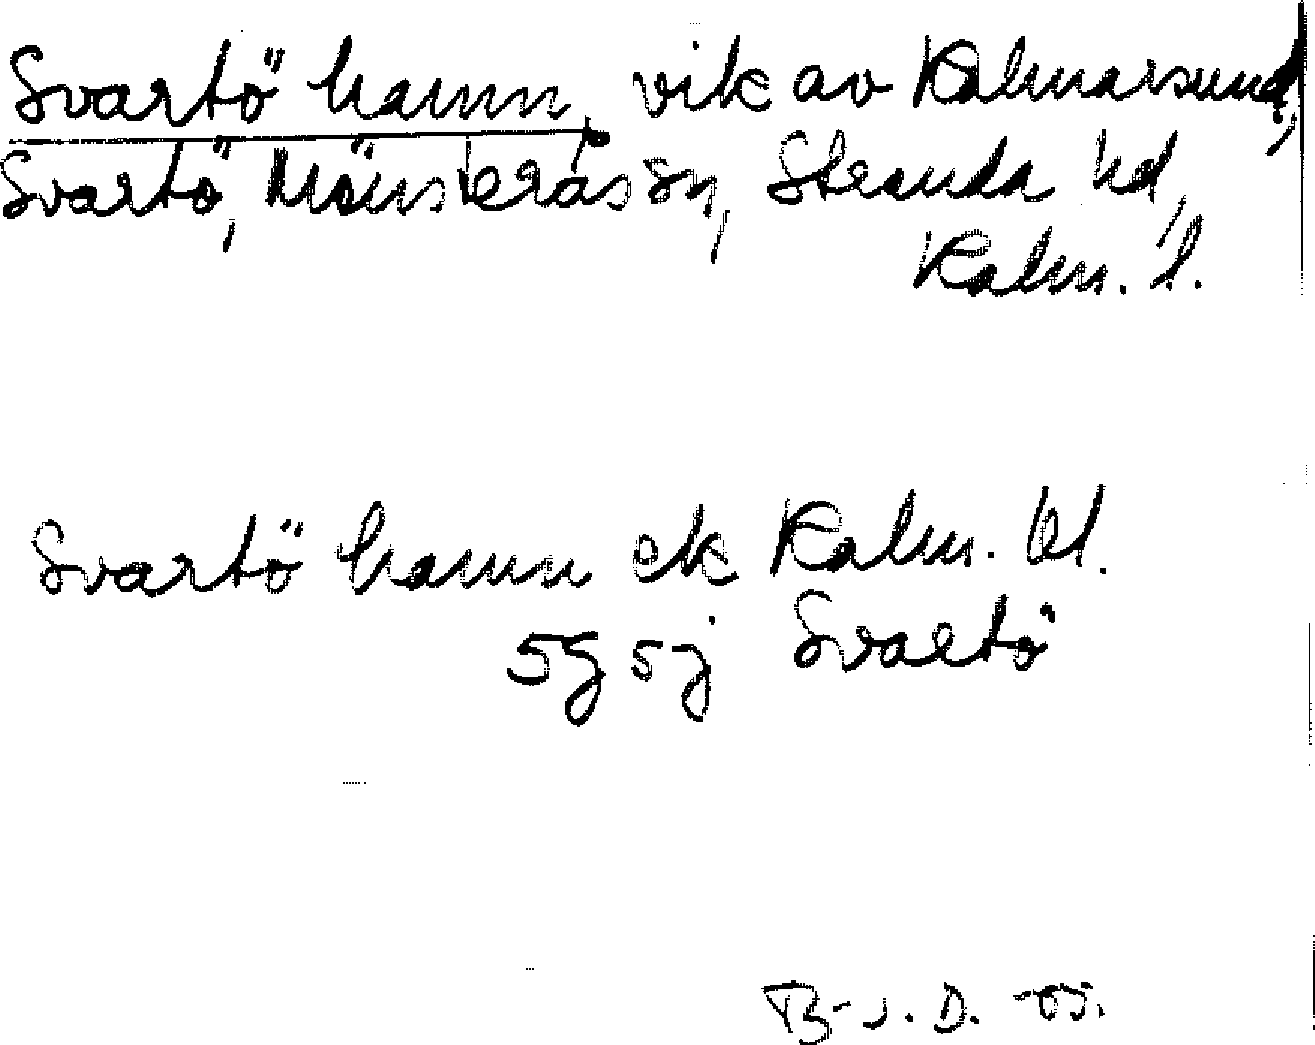 Svartö hamn, vik av Kalmarsund,
Svartö, Mönsterås sn, Stranda hd,
Kalm. l.
Svartö hamn ek Kalm. bl.
5g 5j Svartö
B-J. D. -05.